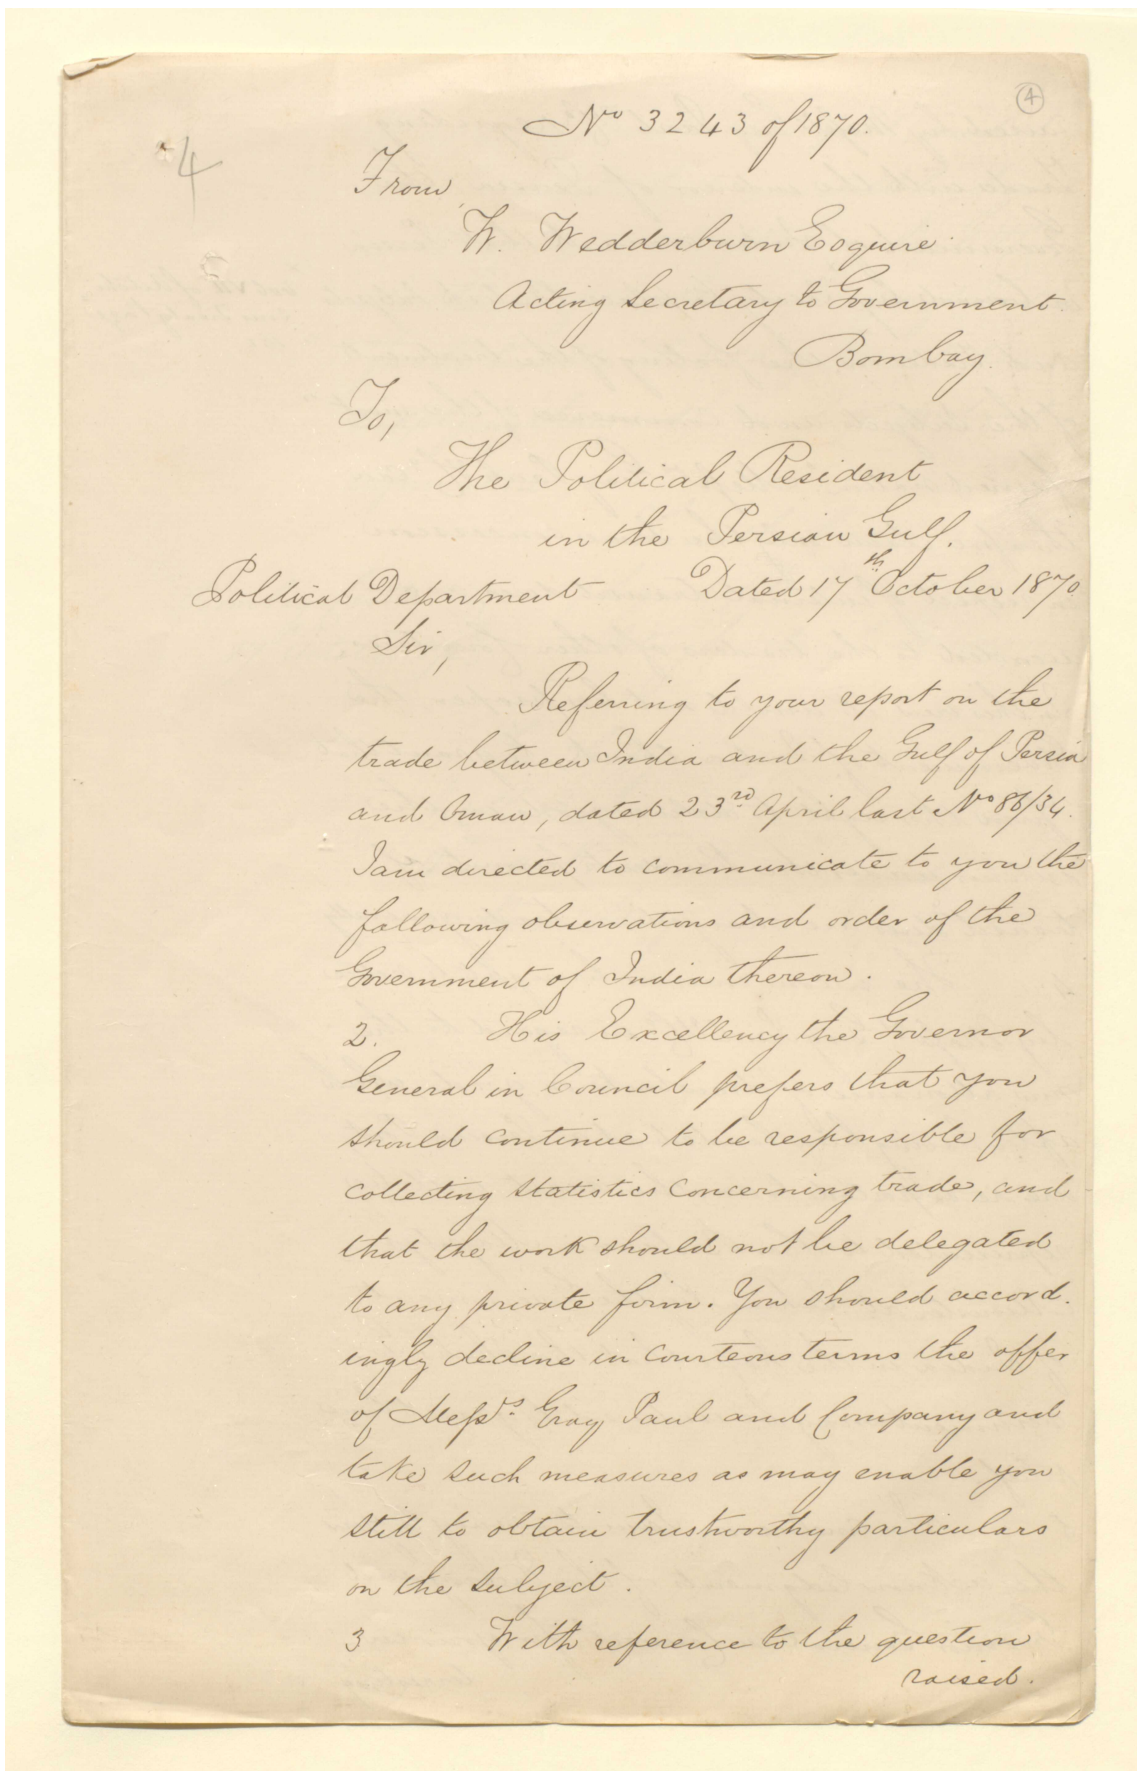 4
No 3243 of 1870.
4
From,
W. Wedderburn Esquire
Acting Secretary to Government
Bombay.
To,
The Political Resident
in the Persian Gulf.
Political Department Dated 17th October 1870
Sir,
Referring to your report on the
trade between India and the Gulf of Persia
and Oman, dated 23rd April last No 86/34.
I am directed to communicate to you the
following observations and order of the
Government of India thereon.
2. His Excellency the Governor
General in Council prefers that you
should continue to be responsible for
collecting statistics concerning trade, and
that the work should not be delegated
to any private firm. You should accord.
ingly decline in courteous terms the offer
of Messrs. Gray Paul and Company and
take such measures as may enable you
still to obtain trustworthy particulars
on the subject.
3 With reference to the question
raised.